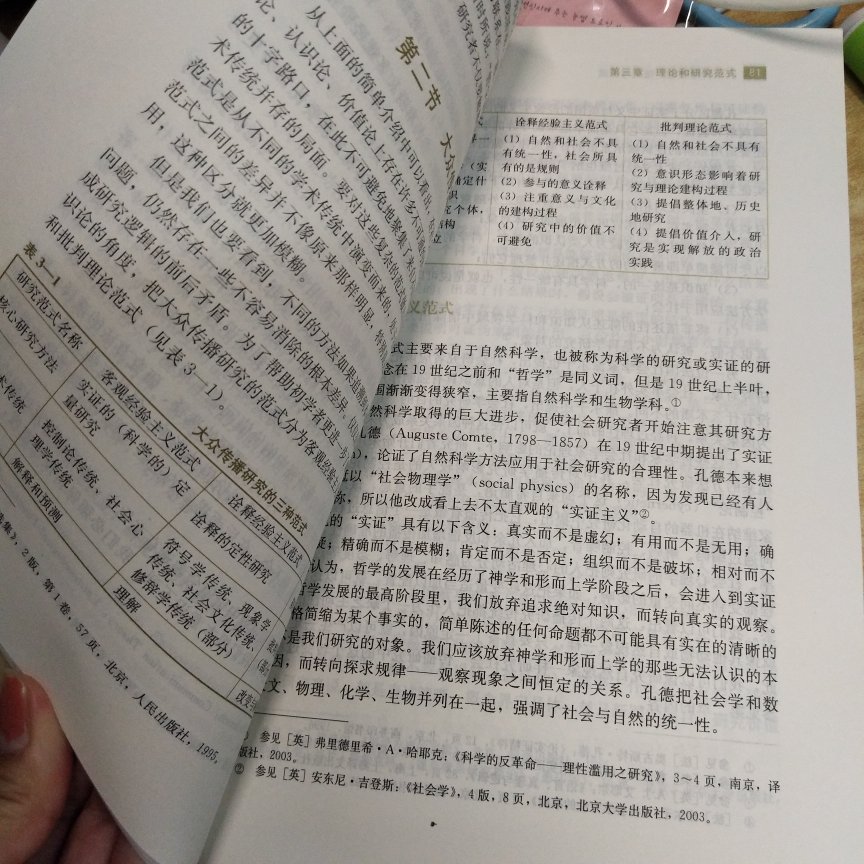 第二节 大众
从上面的简单介绍中可以看出，在
论、认识论、价值论上存在许多不同
的十字路口，在此不可避免地聚集了来
术传统并存的局面。要对这些复杂的范式
范式是从不同的学术传统中演变而来的，
范式之间的差异并不像原来那样明显，特别
用，这种区分就更加模糊。
但是我们也要看到，不同的方法如果追溯
问题，仍然存在一些不容易消除的根本差异，
成研究逻辑的前后矛盾。为了帮助初学者更进一步
识论的角度，把大众传播研究的范式分为客观经验主
和批判理论范式（见表3—1）。
表3—1
大众传播研究的三种范式
研究范式名称
客观经验主义范式
诠释经验主义范式
核心研究方法
实证的（科学的）定
量研究
诠释的定性研究
术传统
控制论传统、社会心
理学传统
符号学传统、现象学
传统、社会文化传统、
修辞学传统（部分）
解释和预测
理解
改变
选集》，2版，第1卷，57页，北京，人民出版社，1995。
第三章 理论和研究范式 81
诠释经验主义范式
批判理论范式
（1）自然和社会不具
有统一性，社会所具
有的是规则
（2）参与的意义诠释
（3）注重意义与文化
的建构过程
（4）研究中的价值不
可避免
（1）自然和社会不具有
统一性
（2）意识形态影响着研
究与理论建构过程
（3）提倡整体地、历史
地研究
（4）提倡价值介入，研
究是实现解放的政治
实践
义范式
式主要来自于自然科学，也被称为科学的研究或实证的研
念在19世纪之前和“哲学”是同义词，但是19世纪上半叶，
国渐渐变得狭窄，主要指自然科学和生物学科。①
然科学取得的巨大进步，促使社会研究者开始注意其研究方
孔德（Auguste Comte，1798—1857）在19世纪中期提出了实证
），论证了自然科学方法应用于社会研究的合理性。孔德本来想
以“社会物理学”（social physics）的名称，因为发现已经有人
称，所以他改成看上去不太直观的“实证主义”②。
的“实证”具有以下含义：真实而不是虚幻；有用而不是无用；确
疑；精确而不是模糊；肯定而不是否定；组织而不是破坏；相对而不
认为，哲学的发展在经历了神学和形而上学阶段之后，会进入到实证
哲学发展的最高阶段里，我们放弃追求绝对知识，而转向真实的观察。
格简缩为某个事实的，简单陈述的任何命题都不可能具有实在的清晰的
是我们研究的对象。我们应该放弃神学和形而上学的那些无法认识的本
因，而转向探求规律——观察现象之间恒定的关系。孔德把社会学和数
文、物理、化学、生物并列在一起，强调了社会与自然的统一性。
参见［英］弗里德里希·A·哈耶克：《科学的反革命——理性滥用之研究》，3～4页，南京，译
版社，2003。
② 参见［英］安东尼·吉登斯：《社会学》，4版，8页，北京，北京大学出版社，2003。